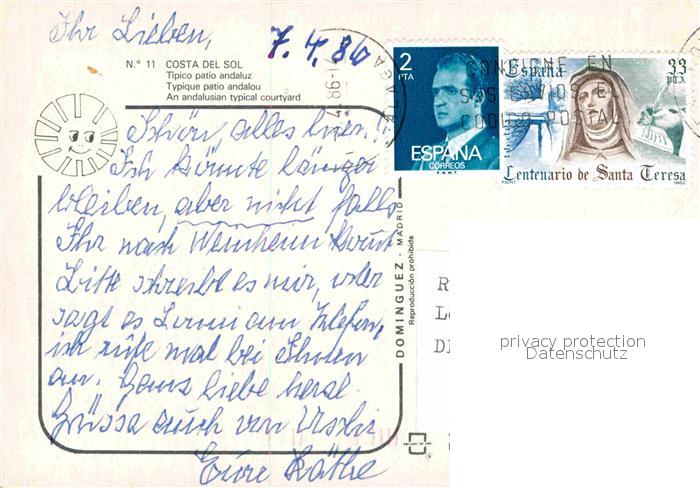 Ihr Lieben,
7.4.86
N.º 11 COSTA DEL SOL
Típico patio andaluz
Typique patio andalou
An andalusian typical courtyard
Schön, alles hier!!
Ich könnte länger
bleiben, aber nicht falls
Ihr nach Weinheim kommt
Bitte schreibt es mir, oder
sagt es am Telefon,
ich rufe mal bei Ihnen
an. Ganz liebe herzl.
Grüsse auch von Uschi
Eure Käthe
DOMINGUEZ - MADRID
Reproducción prohibida
2
PTA
ESPAÑA
CORREOS
F.N.M.T.
España
33
PTA
Centenario de Santa Teresa
FNMT
1982
CONSIGNE EN
SUS ENVIOS EL
CODIGO POSTAL
MALAGA
R
L
D
privacy protection
Datenschutz